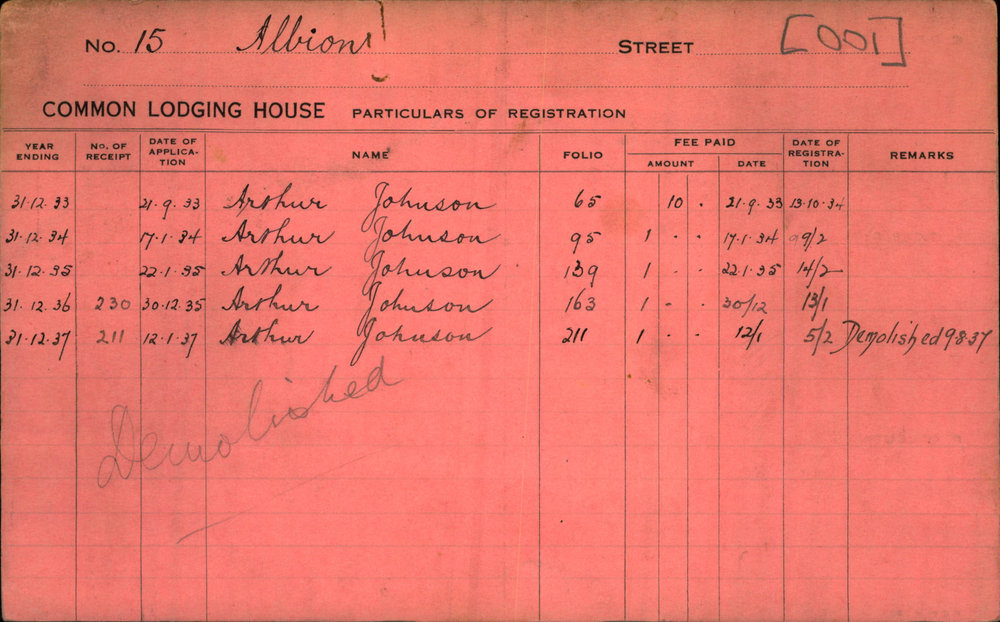 No. 15 Albion STREET [001]
COMMON LODGING HOUSE PARTICULARS OF REGISTRATION
YEAR ENDING NO. OF RECEIPT DATE OF APPLICA-TION NAME FOLIO FEE PAID AMOUNT DATE DATE OF REGISTRA-TION REMARKS
31.12.33 21.9.33 Arthur Johnson 65 10 . 21.9.33 13.10.34
31.12.34 17.1.34 Arthur Johnson 95 1 . . 17.1.34 9/2
31.12.35 22.1.35 Arthur Johnson 139 1 . . 22.1.35 14/2
31.12.36 230 30.12.35 Arthur Johnson 163 1 - . 30/12 13/1
31.12.37 211 12.1.37 Arthur Johnson 211 1 . . 12/1 5/2 Demolished 9.8.37
Demolished